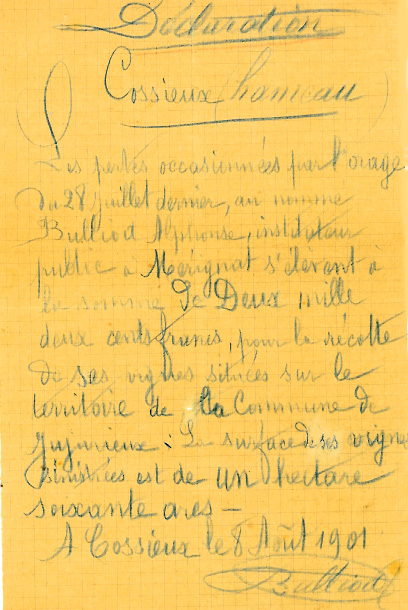 Déclaration
Cossieux (hameau)
Les pertes occasionnées par l'orage
du 28 juillet dernier, au nommé
Bulliod Alphonse, instituteur
public à Mérignat s'élèvent à
la somme de Deux mille
deux cents francs, pour la récolte
de ses vignes situées sur le
territoire de la Commune de
Jujurieux. La surface de ses vignes
sinistrées est de un hectare
soixante ares —
A Cossieux le 8 Août 1901
Bulliod